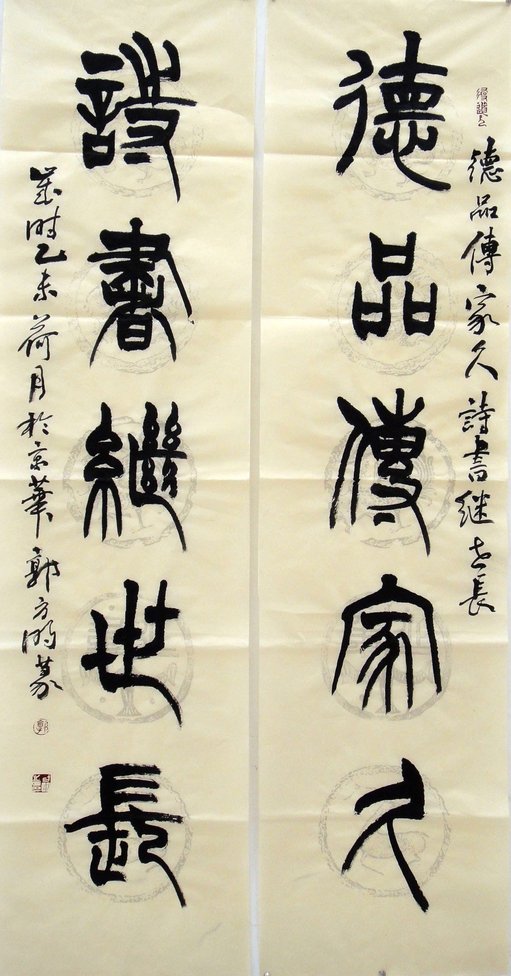 德品傳家久
詩書繼世長
德品傳家久詩書继世長
歲时乙未荷月於京華郭方